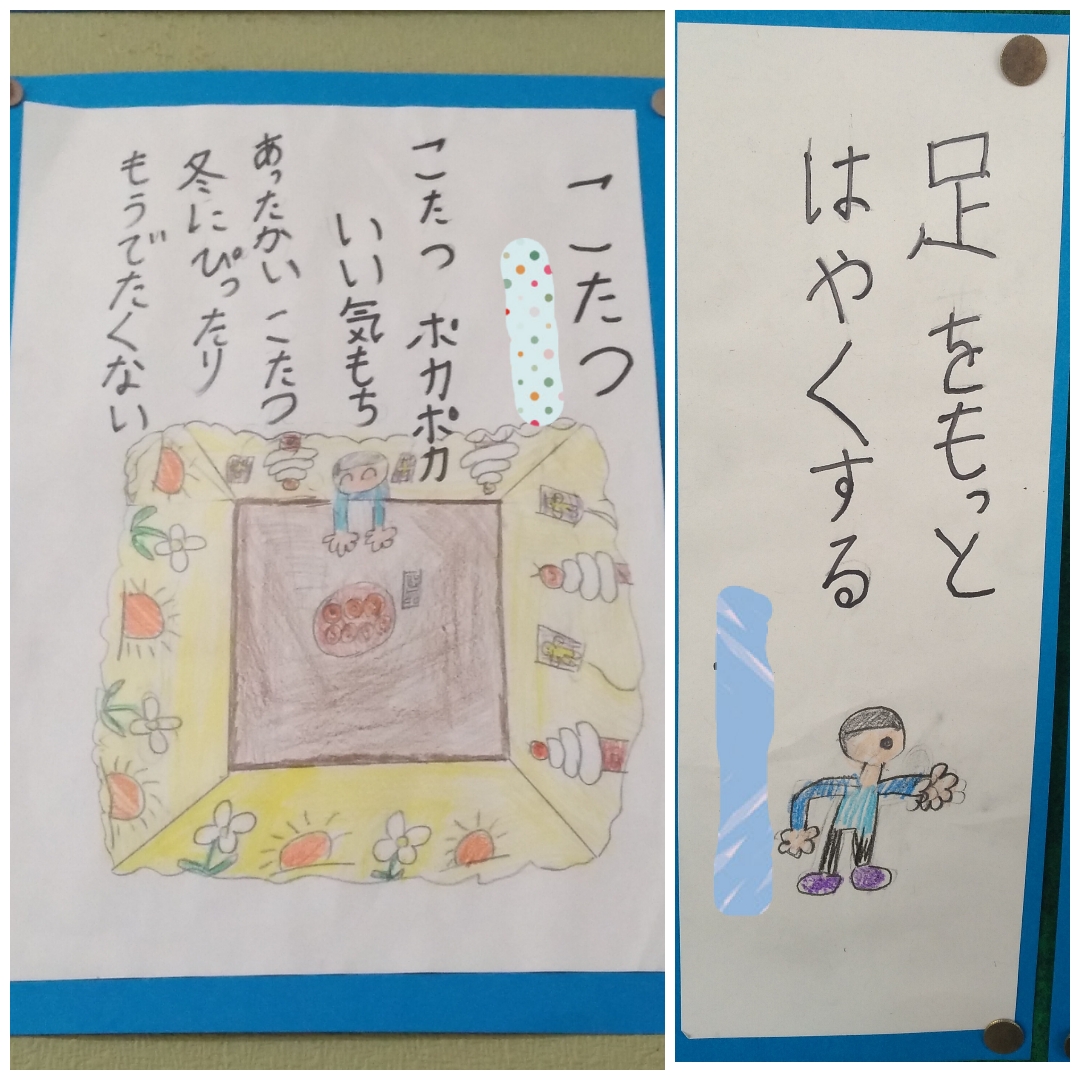 こたつ
こたつ ポカポカ
いい気もち
あったかい こたつ
冬にぴったり
もうでたくない
足をもっと
はやくする